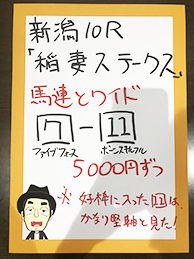 新潟10R
「稲妻ステークス」
馬連とワイド
7-11
ファイブフォース ボーンスキルフル
5000円ずつ
※好枠に入った11は、
かなり堅軸と見た!